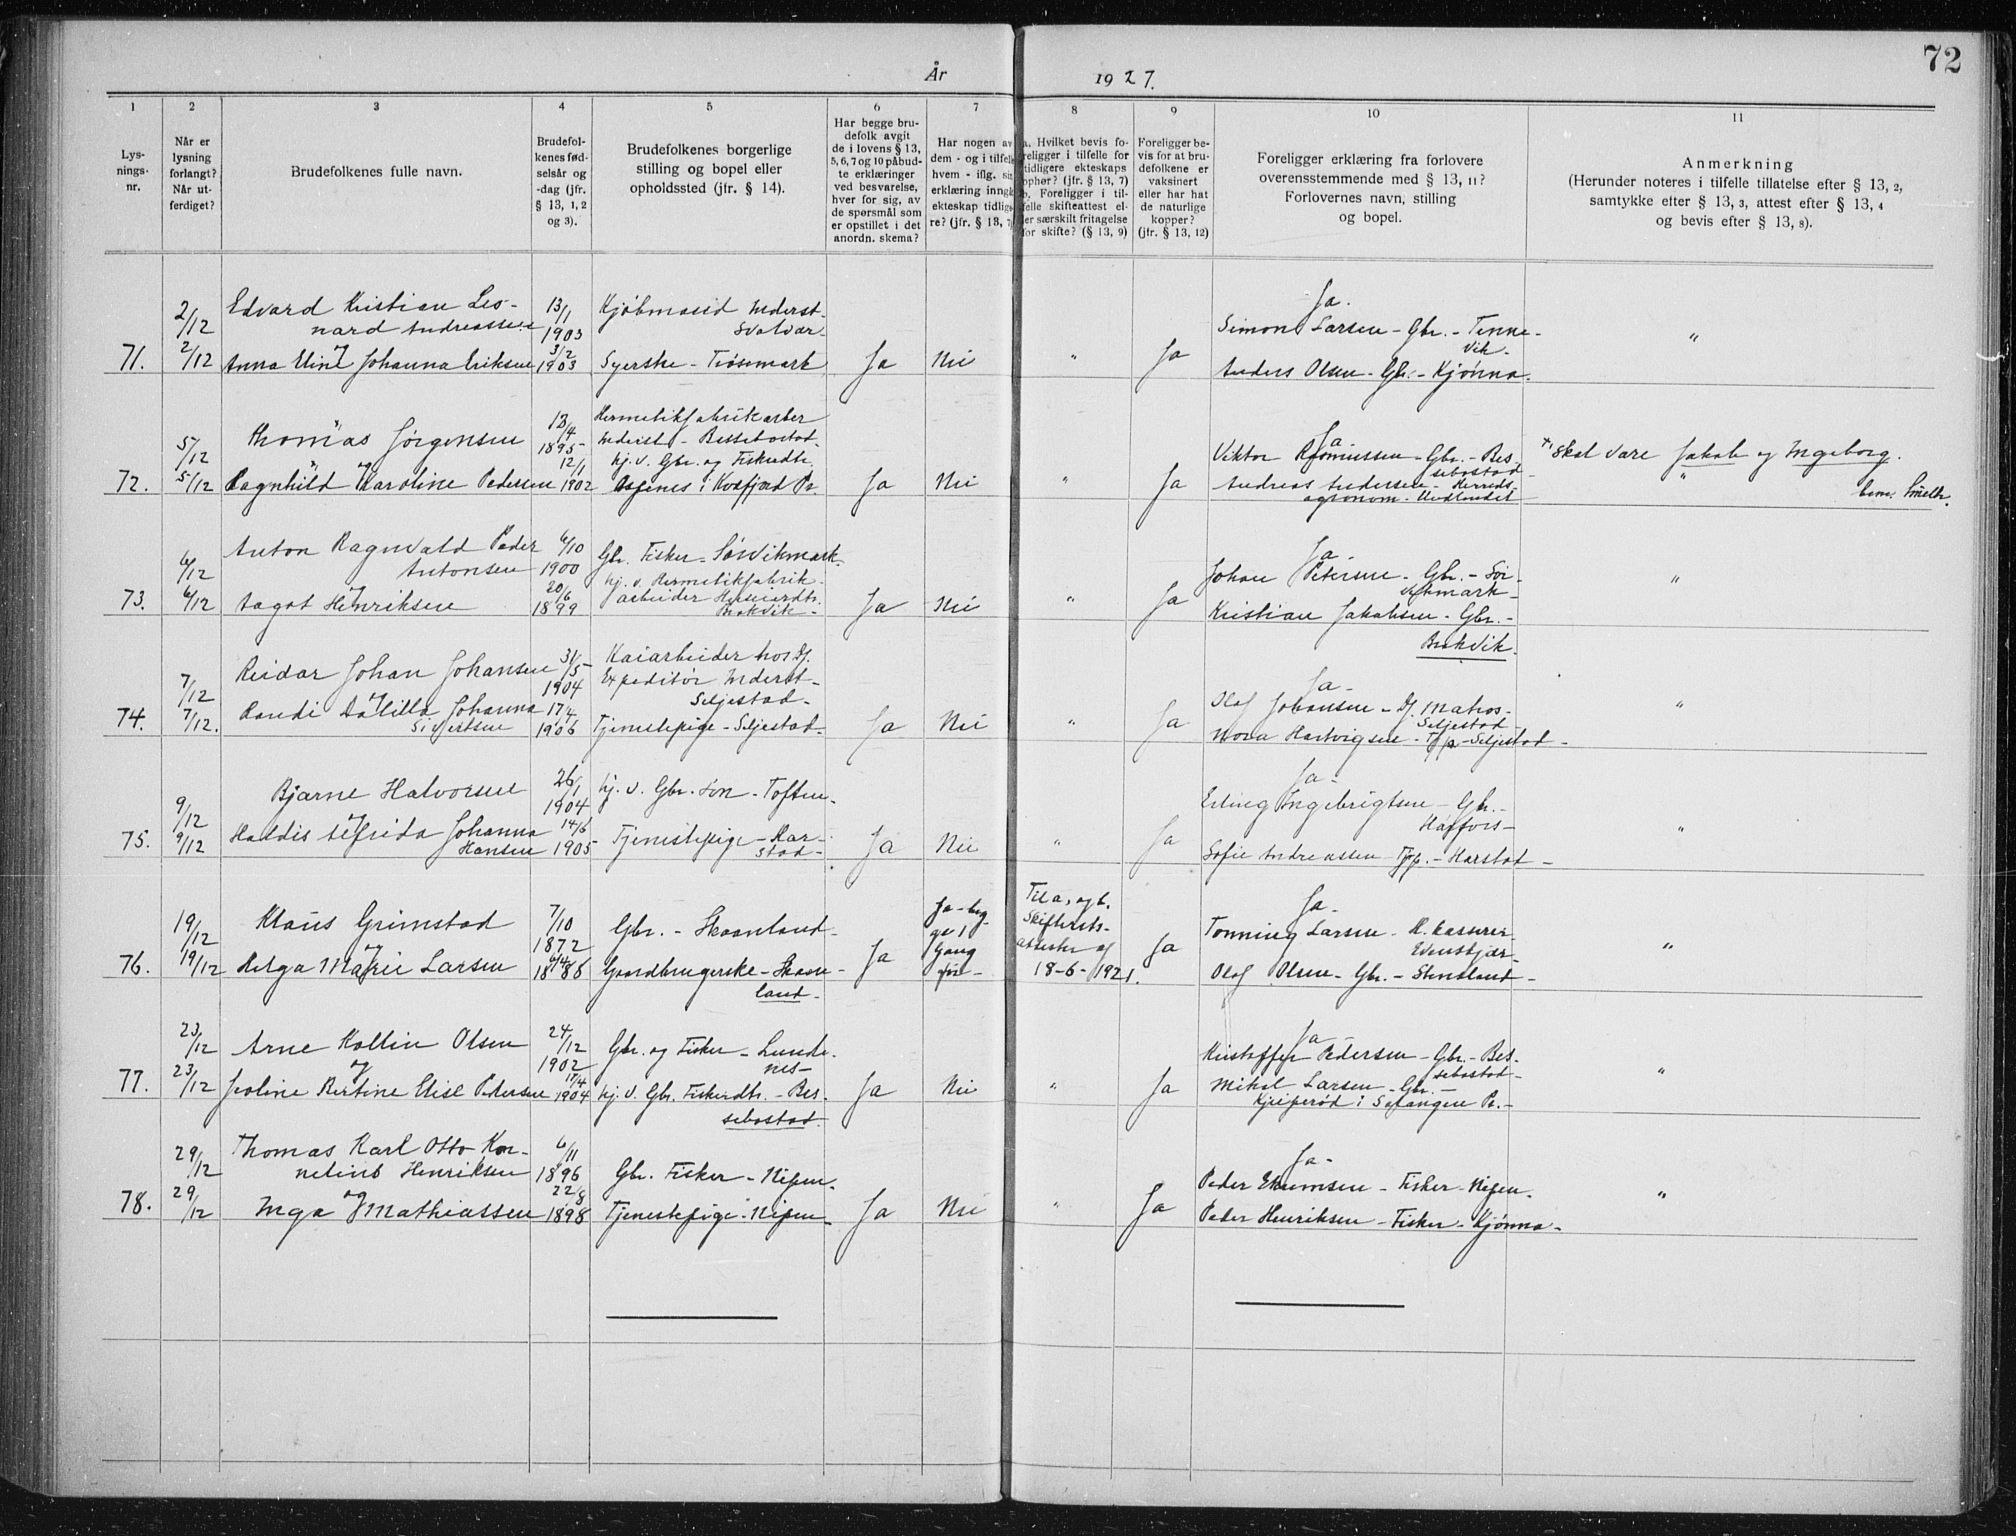 72
År 1927.
1 2 3 4 5 6 7 8 9 10 11
Lysningsnr.
Når er lysning forlangt? Når utferdiget?
Brudefolkenes fulle navn.
Brudefolkenes fødselsår og -dag (jfr. § 13, 1, 2 og 3).
Brudefolkenes borgerlige stilling og bopel eller opholdssted (jfr. § 14).
Har begge brudefolk avgit de i lovens § 13, 5, 6, 7 og 10 påbudte erklæringer ved besvarelse, hver for sig, av de spørsmål som er opstillet i det anordn. skema?
Har nogen av dem - og i tilfelle hvem - iflg. sin erklæring inngå ekteskap tidligere? (jfr. § 13, 7
a. Hvilket bevis foreligger i tilfelle for tidligere ekteskaps ophør? (jfr. § 13, 7) b. Foreligger i tilfelle skifteattest eller særskilt fritagelse for skifte? (§ 13, 9)
Foreligger bevis for at brudefolkene er vaksinert eller har hat de naturlige kopper? (jfr. § 13, 12)
Foreligger erklæring fra forlovere overensstemmende med § 13, 11? Forlovernes navn, stilling og bopel.
Anmerkning
(Herunder noteres i tilfelle tillatelse efter § 13, 2, samtykke efter § 13, 3, attest efter § 13, 4 og bevis efter § 13, 8).
2/12 Edvard Kristian Leonard Andreassen 13/1 1903 Kjøbmand Inderst- Svolvær. Ja. Simon Larsen - Gbr. - Tennevik.
71. 2/12 og Anna Eline Johanna Eriksen 3/2 1903 Syerske - Trøsemark Ja Nei " Ja Anders Olsen - Gbr. - Kjønna. "
5/12 Thomas Jørgensen 13/4 1895 Hermetikfabrikarber Inderst - Bessebostad. Ja Viktor Rasmussen - Gbr. - Bessebostad - skal være Jakob og Ingeborg.
72. 5/12 og Ragnhild Karoline Pedersen 12/1 1902 hj. v. Gbr. og Fiskerdtr. i Kvæfjord Pr. Ja Nei " Ja Andreas Andersen - Herredsagronom - "
6/12 Anton Ragnvald Peder Antonsen 6/10 1900 Gbr. Fisker - Sørvikmark. Ja Johan Petersen - Gbr. - Sørvikmark -
73. 6/12 og Aagot Henriksen 20/6 1899 hj. v. Hermetikfabrikarbeider Brokvik - Ja Nei " Ja Kristian Jakobsen - Gbr. - Brokvik. "
7/12 Reidar Johan Johansen 31/5 1904 Kaiarbeider hos Ds. Expeditør Inderst - Seljestad - Ja - Olaf Johansen - Ds. Matros - Seljestad
74. 7/12. og Randi Dalilla Johanna Sivertsen 17/4 1906 Tjenestepige - Seljestad. Ja Nei " Ja Nora Hartvigsen - Tjp - Seljestad - "
9/12 Bjarne Halvorsen 26/1 1904 hj. v. Gbr. Søn - Toften - Ja - Erling Ingebrigtsen - Gbr. - Halfors -
75. 9/12 og Haldis Alfrida Johanna Hansen 14/6 1905 Tjenestepige - Harstad - Ja Nei " Ja Sofie Andreassen Tjp. - Harstad - "
19/12 Klaus Grimstad 7/10 1872 Gbr. - Skaanland - Ja - begge 1 Gang før - Til a, og b. Skifterets-attester af 18-6-1921. Ja - Tonning Larsen - H. kasserer - Evenskjær -
76. 19/12 og Helga Marie Larsen 1886 Gaardbrugerske - Skaanland - Ja Ja Olaf Olsen - Gbr. - Stensland - "
23/12 Arne Kollin Olsen 24/12 1902 Gbr. og Fisker - Lundenes - Ja Kristoffer Pedersen - Gbr. - Bessebostad -
77. 23/12 og Jooline Bertine Elise Petersen 17/4 1904 hj. v. Gbr. Fiskerdtr. - Bessebostad. Ja Nei " Ja Mikal Larsen - Gbr. - i Salangen Pr. - "
29/12 Thomas Karl Otto Kornelius Henriksen 6/11 1896 Gbr. Fisker - Nipen - Ja -
78. 29/12 og Inga Mathiassen 22/8 1898 Tjenestepige - Nipen - Ja Nei " Ja Fisker - Nipen - "
Peder Henriksen - Fisker - Kjønna -